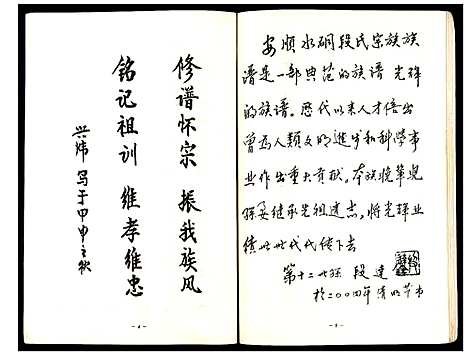 安顺水硐段氏宗族族
谱是一部典范的族谱 光辉
的族谱。历代以来人才倍出
曾为人类文明进步和科学事
业作出重大贡献。本族晚辈儿
孙要继承先祖遗志，将光辉业
绩世世代代传下去
第十二世孙 段 达
于二〇〇四年清明节书
修谱怀宗 振我族风
铭记祖训 维孝维忠
兴炜 写于甲申之秋